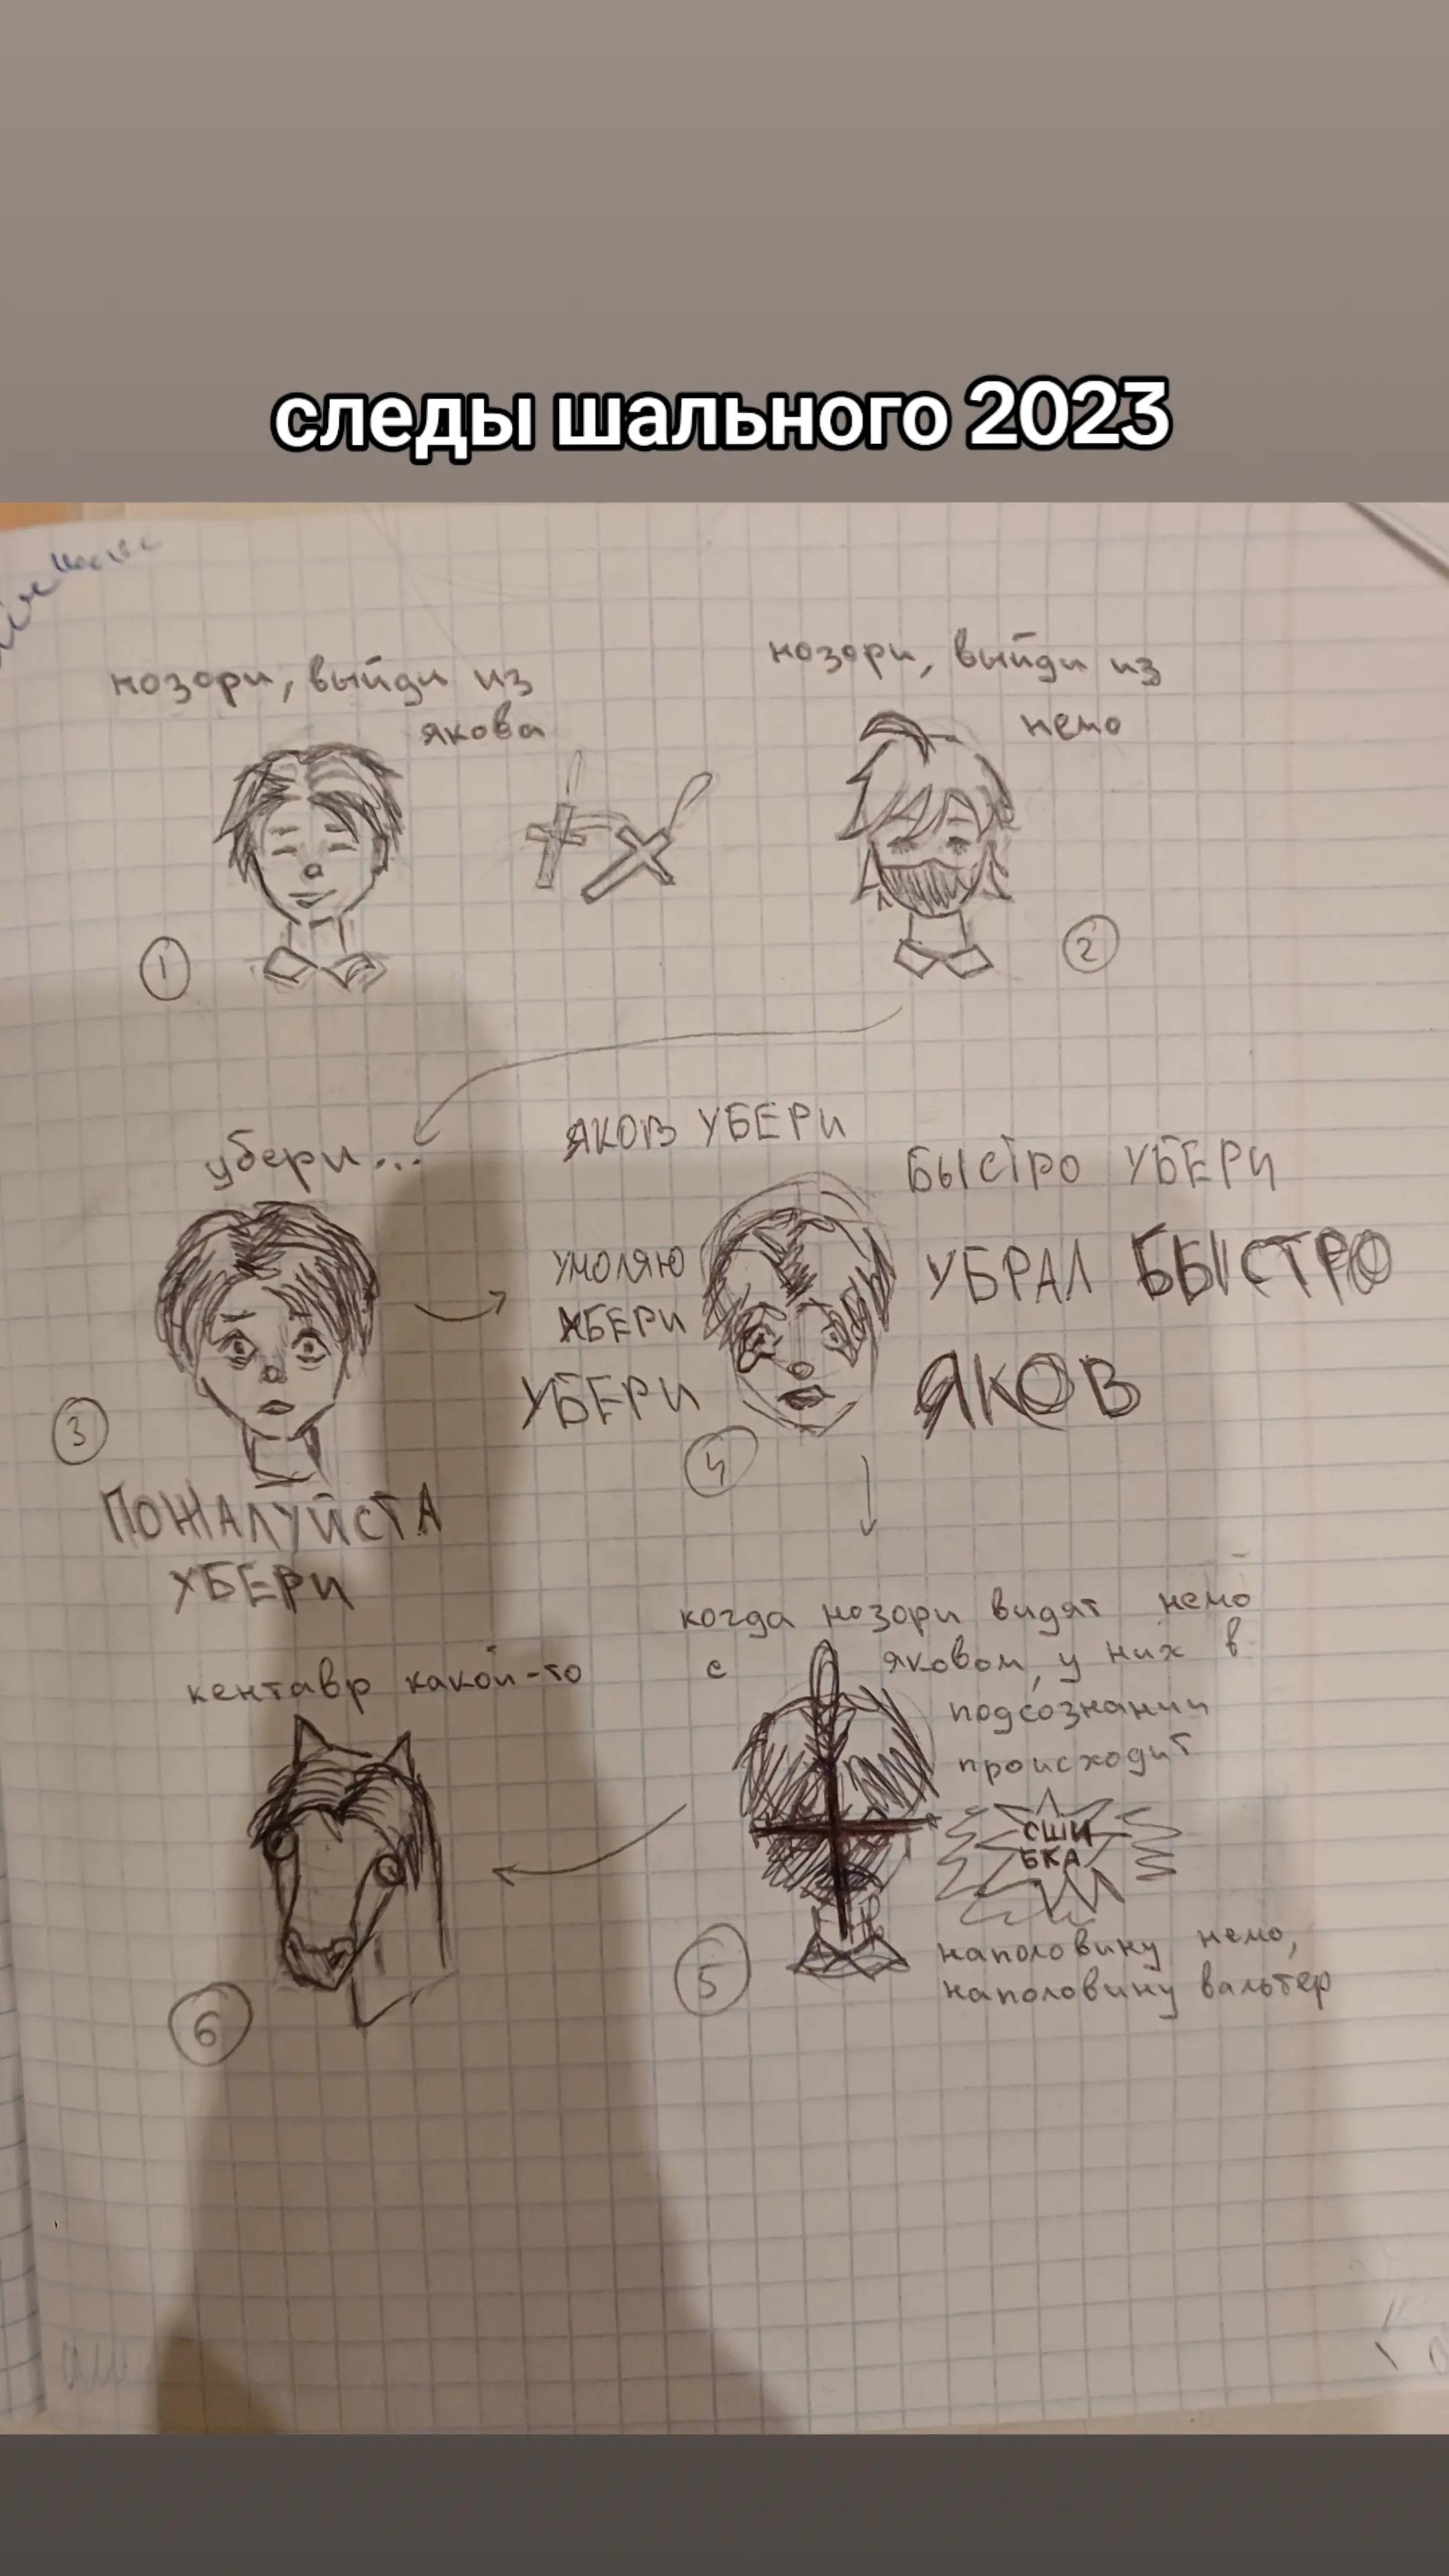 следы шального 2023
нозори, выйди из
якова
нозори, выйди из
немо
1
2
убери...
ПОЖАЛУЙСТА
УБЕРИ
3
ЯКОВ УБЕРИ
УМОЛЯЮ
УБЕРИ
УБЕРИ
БЫСТРО УБЕРИ
УБРАЛ БЫСТРО
ЯКОВ
4
когда нозори видят немо
с яковом, у них в
подсознании
происходит
СШИ
БКА
наполовину немо,
наполовину вальтер
5
кентавр какой-то
6